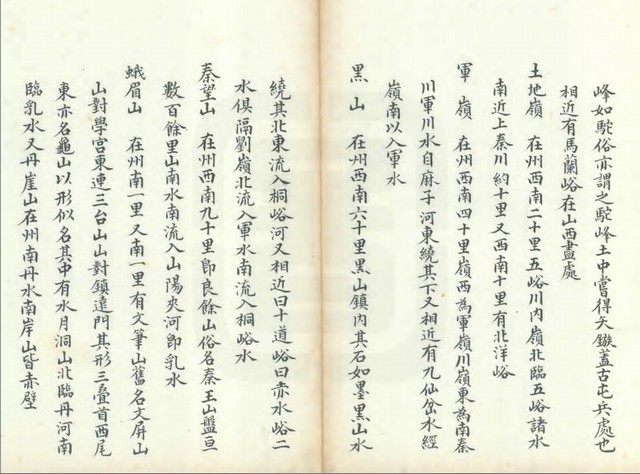 峰如駝俗亦謂之駝峰土中嘗得矢鏃蓋古屯兵處也
相近有馬蘭峪在山西盡處
土地嶺 在州西南二十里五峪川内嶺北臨五峪諸水
南近上秦川約十里又西南十里有北洋峪
軍嶺 在州西南四十里嶺西為軍嶺川嶺東為南秦
川軍川水自麻子河東繞其下又相近有九仙岔水經
嶺南以入軍水
黑山 在州西南六十里黑山鎮内其石如墨黑山水
繞其北東流入桐峪河又相近曰十道峪曰赤水峪二
水俱隔劉嶺北流入軍水南流入桐峪水
秦望山 在州西南九十里即良餘山俗名秦王山盤亘
數百餘里山南水南流入山陽夾河即乳水
蛾眉山 在州南一里又南一里有文筆山舊名文屏山
山對學宮東連三台山山對鎮遠門其形三疊首西尾
東亦名龜山以形似名其中有水月洞山北臨丹河南
臨乳水又丹崖山在州南丹水南岸山皆赤壁